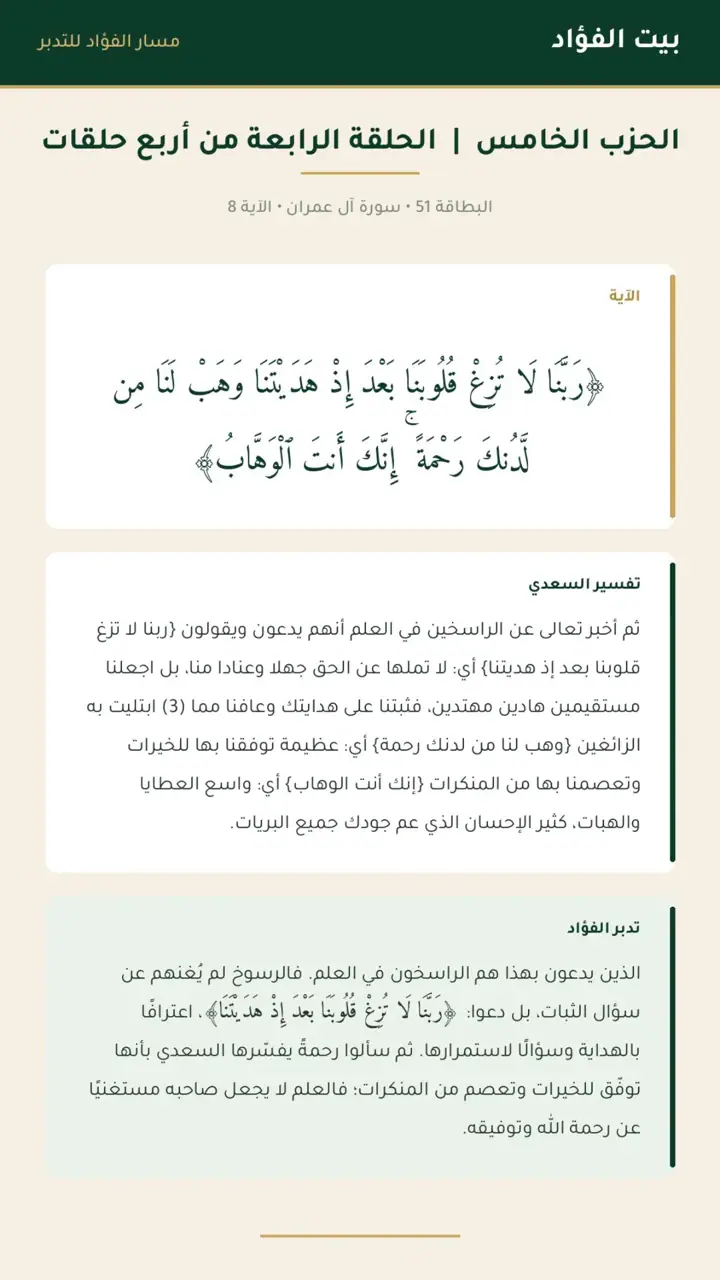 بيت الفؤاد
مسار الفؤاد للتدبر
الحزب الخامس | الحلقة الرابعة من أربع حلقات
البطاقة 51 • سورة آل عمران • الآية 8
الآية
﴿رَبَّنَا لَا تُزِغْ قُلُوبَنَا بَعْدَ إِذْ هَدَيْتَنَا وَهَبْ لَنَا مِن
لَّدُنكَ رَحْمَةً ۚ إِنَّكَ أَنتَ ٱلْوَهَّابُ﴾
تفسير السعدي
ثم أخبر تعالى عن الراسخين في العلم أنهم يدعون ويقولون {ربنا لا تزغ
قلوبنا بعد إذ هديتنا} أي: لا تملها عن الحق جهلا وعنادا منا، بل اجعلنا
مستقيمين هادين مهتدين، فثبتنا على هدايتك وعافنا مما (3) ابتليت به
الزائغين {وهب لنا من لدنك رحمة} أي: عظيمة توفقنا بها للخيرات
وتعصمنا بها من المنكرات {إنك أنت الوهاب} أي: واسع العطايا
والهبات، كثير الإحسان الذي عم جودك جميع البريات.
تدبر الفؤاد
الذين يدعون بهذا هم الراسخون في العلم. فالرسوخ لم يُغنهم عن
سؤال الثبات، بل دعوا: ﴿رَبَّنَا لَا تُزِغْ قُلُوبَنَا بَعْدَ إِذْ هَدَيْتَنَا﴾، اعترافًا
بالهداية وسؤالًا لاستمرارها. ثم سألوا رحمةً يفسّرها السعدي بأنها
توفّق للخيرات وتعصم من المنكرات؛ فالعلم لا يجعل صاحبه مستغنيًا
عن رحمة الله وتوفيقه.